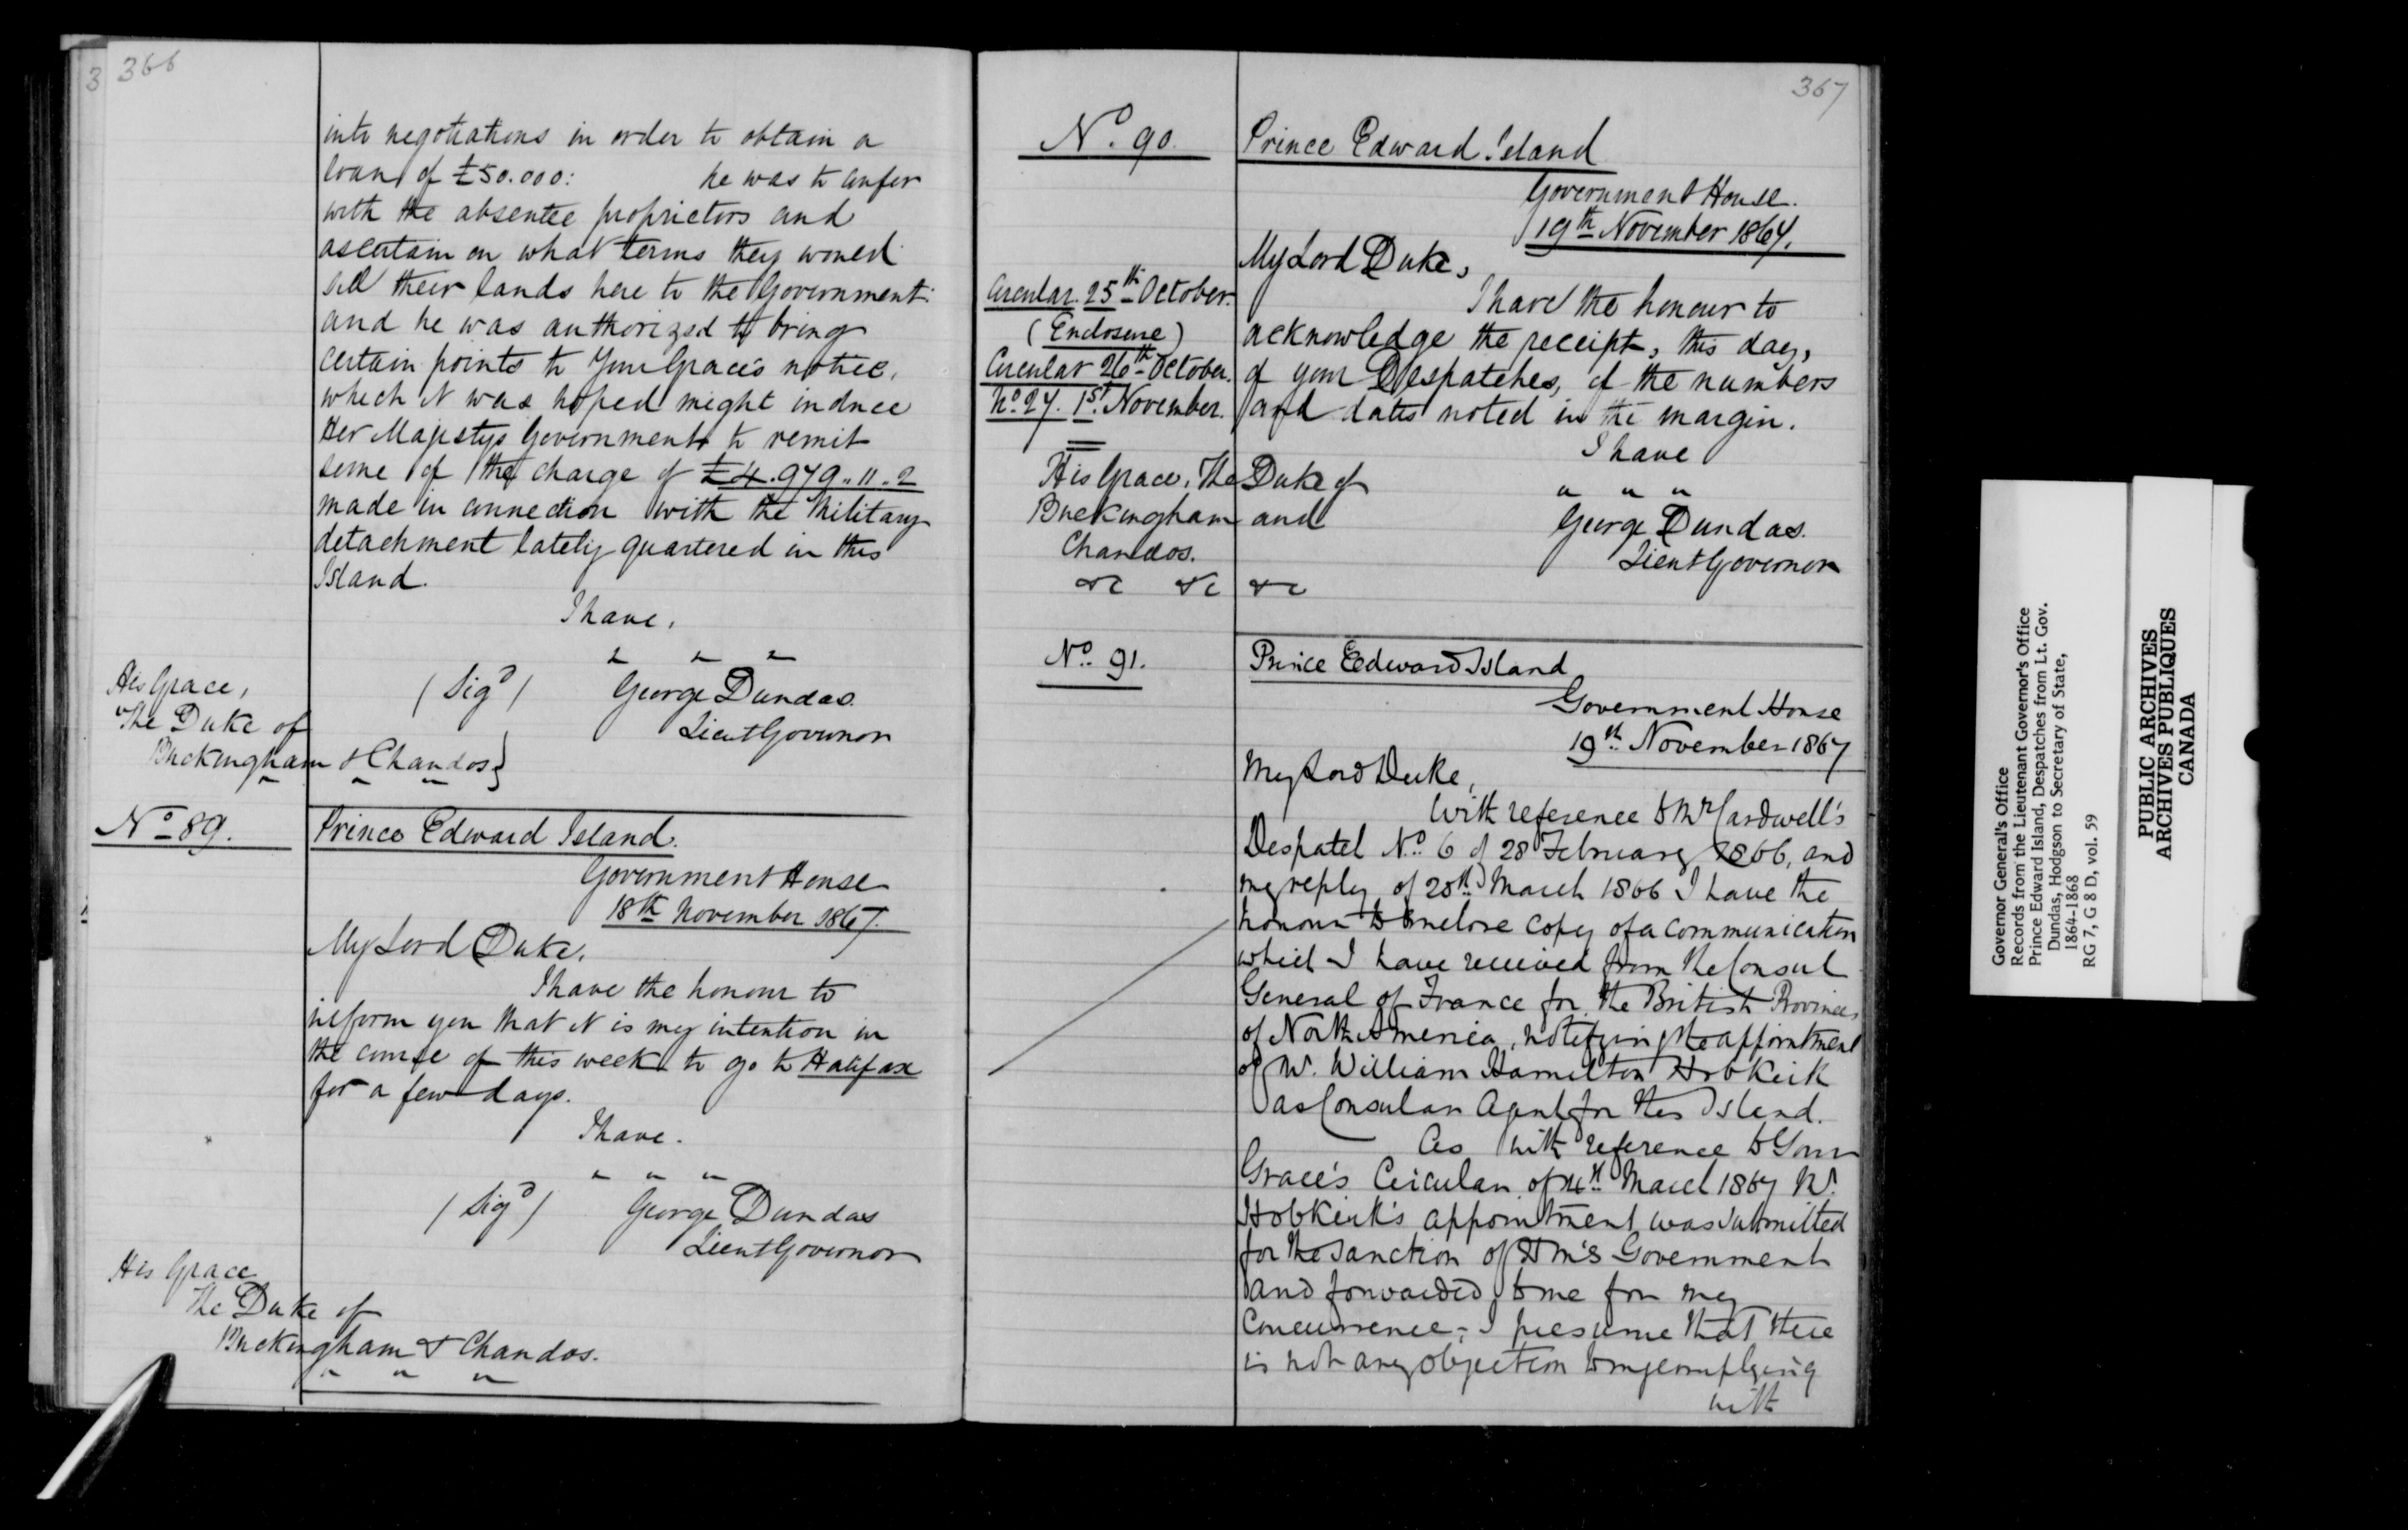 3 366
into negotiations in order to obtain a
loan of £50.000: he was to confer
with the absentee proprietors and
ascertain on what terms they would
sell their lands here to the Government:
and he was authorized to bring
certain points to Your Grace's notice,
which it was hoped might induce
Her Majestys Government to remit
some of the charge of £4.979.11.2
made in connection with the Military
detachment lately quartered in this
Island.
I have,
" " "
(Sigd) George Dundas.
Lieut Governor
His Grace,
The Duke of
Buckingham & Chandos}
" " "
No 89.
Prince Edward Island.
Government House
18th November 1867.
My Lord Duke,
I have the honour to
inform you that it is my intention in
the course of this week to go to Halifax
for a few days.
I have.
" " "
(Sigd) George Dundas
Lieut Governor
His Grace
The Duke of
Buckingham & Chandos.
" " "
367
No. 90.
Prince Edward Island
Government House.
19th November 1867.
My Lord Duke,
Circular. 25th October.
(Enclosure)
Circular 26th October.
No. 27. 1st November.
I have the honour to
acknowledge the receipt, this day,
of your Despatches, of the numbers
and dates noted in the margin.
I have
" " "
George Dundas.
Lieut Governor
His Grace, The Duke of
Buckingham and
Chandos.
&c &c &c
No. 91.
Prince Edward Island
Government House
19th November 1867
My Lord Duke,
With reference to Mr Cardwell's
Despatch No. 6 of 28 February 1866, and
my reply of 28th March 1866 I have the
honour to enclose copy of a communication
which I have received from the Consul
General of France for the British Provinces
of North America, notifying the appointment
of Mr. William Hamilton Hobkirk
as Consular Agent for this Island.
As with reference to Your
Grace's Circular of 4th March 1867 Mr.
Hobkirk's appointment was submitted
for the sanction of HM's Government
and forwarded to me for my
concurrence, I presume that there
is not any objection to my complying
with
Governor General's Office
Records from the Lieutenant Governor's Office
Prince Edward Island, Despatches from Lt. Gov.
Dundas, Hodgson to Secretary of State,
1864-1868
RG 7, G 8 D, vol. 59
PUBLIC ARCHIVES
ARCHIVES PUBLIQUES
CANADA